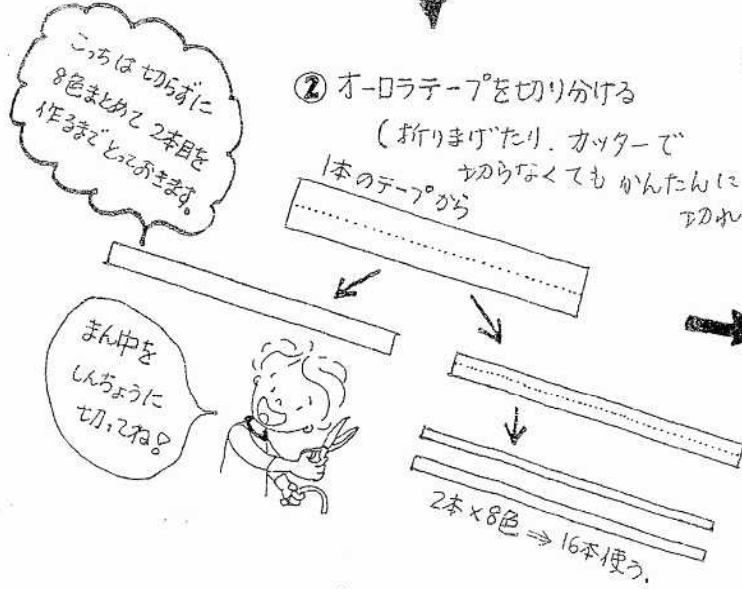 こっちは切らずに
8色まとめて 2本目を
作るまでとっておきます。
② オーロラテープを切り分ける
(折りまげたり、カッターで
切らなくても かんたんに
切れ
1本のテープから
まん中を
しんちょうに
切ってね!
2本×8色⇒16本使う.